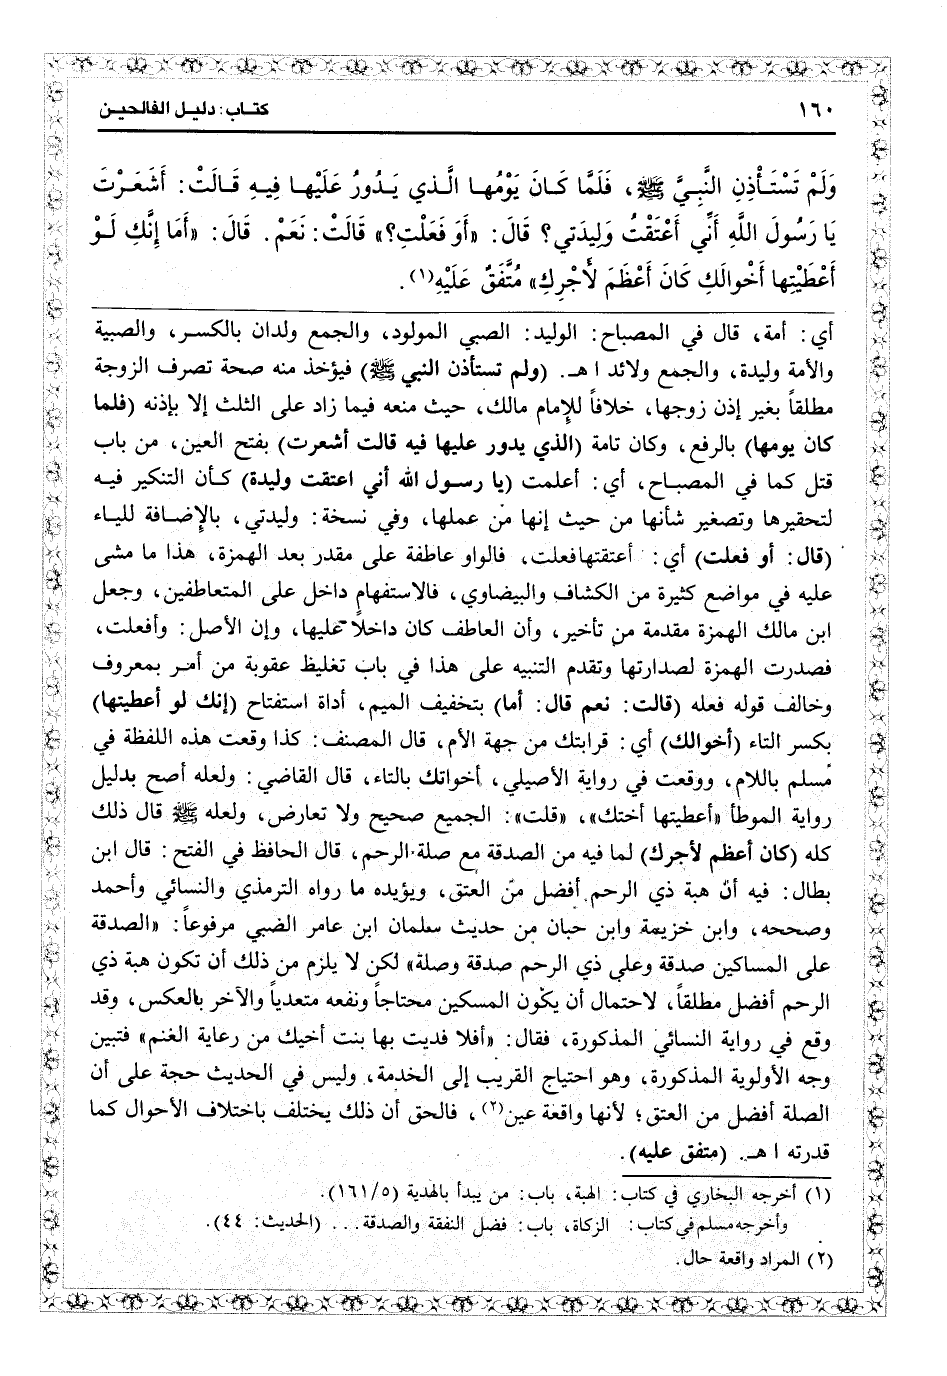 ١٦٠
كتـاب: دليـل الفالحيـن
وَلَمْ تَسْتَأْذِنِ النَّبِيَّ ﷺ، فَلَمَّا كَانَ يَوْمُهَا الَّذي يَدُورُ عَلَيْهَا فِيهِ قَالَتْ: أَشَعَرْتَ
يَا رَسُولَ اللَّهِ أَنِّي أَعْتَقْتُ وَلِيدَتي؟ قَالَ: «أَوَ فَعَلْتِ؟» قَالَتْ: نَعَمْ. قَالَ: «أَمَا إِنَّكِ لَوْ
أَعْطَيْتِها أَخْوالَكِ كَانَ أَعْظَمَ لِأَجْرِكِ» مُتَّفَقٌ عَلَيْهِ(١).
أي: أمة، قال في المصباح: الوليد: الصبي المولود، والجمع ولدان بالكسر، والصبية
والأمة وليدة، والجمع ولائد ا هـ. (ولم تستأذن النبي ﷺ) فيؤخذ منه صحة تصرف الزوجة
مطلقاً بغير إذن زوجها، خلافاً للإِمام مالك، حيث منعه فيما زاد على الثلث إلا بإذنه (فلما
كان يومها) بالرفع، وكان تامة (الذي يدور عليها فيه قالت أشعرت) بفتح العين، من باب
قتل كما في المصباح، أي: أعلمت (يا رسول الله أني اعتقت وليدة) كأن التنكير فيه
لتحقيرها وتصغير شأنها من حيث إنها من عملها، وفي نسخة: وليدتي، بالإِضافة للياء
(قال: أو فعلت) أي: أعتقتها فعلت، فالواو عاطفة على مقدر بعد الهمزة، هذا ما مشى
عليه في مواضع كثيرة من الكشاف والبيضاوي، فالاستفهام داخل على المتعاطفين، وجعل
ابن مالك الهمزة مقدمة من تأخير، وأن العاطف كان داخلاً عليها، وإن الأصل: وأفعلت،
فصدرت الهمزة لصدارتها وتقدم التنبيه على هذا في باب تغليظ عقوبة من أمر بمعروف
وخالف قوله فعله (قالت: نعم قال: أما) بتخفيف الميم، أداة استفتاح (إنك لو أعطيتها)
بكسر التاء (أخوالك) أي: قرابتك من جهة الأم، قال المصنف: كذا وقعت هذه اللفظة في
مسلم باللام، ووقعت في رواية الأصيلي، أخواتك بالتاء، قال القاضي: ولعله أصح بدليل
رواية الموطأ «أعطيتها أختك»، «قلت»: الجميع صحيح ولا تعارض، ولعله ﷺ قال ذلك
كله (كان أعظم لأجرك) لما فيه من الصدقة مع صلة الرحم، قال الحافظ في الفتح: قال ابن
بطال: فيه أن هبة ذي الرحم أفضل من العتق، ويؤيده ما رواه الترمذي والنسائي وأحمد
وصححه، وابن خزيمة وابن حبان من حديث سلمان ابن عامر الضبي مرفوعاً: «الصدقة
على المساكين صدقة وعلى ذي الرحم صدقة وصلة» لكن لا يلزم من ذلك أن تكون هبة ذي
الرحم أفضل مطلقاً، لاحتمال أن يكون المسكين محتاجاً ونفعه متعدياً والآخر بالعكس، وقد
وقع في رواية النسائي المذكورة، فقال: «أفلا فديت بها بنت أخيك من رعاية الغنم» فتبين
وجه الأولوية المذكورة، وهو احتياج القريب إلى الخدمة، وليس في الحديث حجة على أن
الصلة أفضل من العتق؛ لأنها واقعة عين(٢)، فالحق أن ذلك يختلف باختلاف الأحوال كما
قدرته ا هـ. (متفق عليه).
(١) أخرجه البخاري في كتاب: الهبة، باب: من يبدأ بالهدية (١٦١/٥).
وأخرجه مسلم في كتاب: الزكاة، باب: فضل النفقة والصدقة... (الحديث: ٤٤).
(٢) المراد واقعة حال.